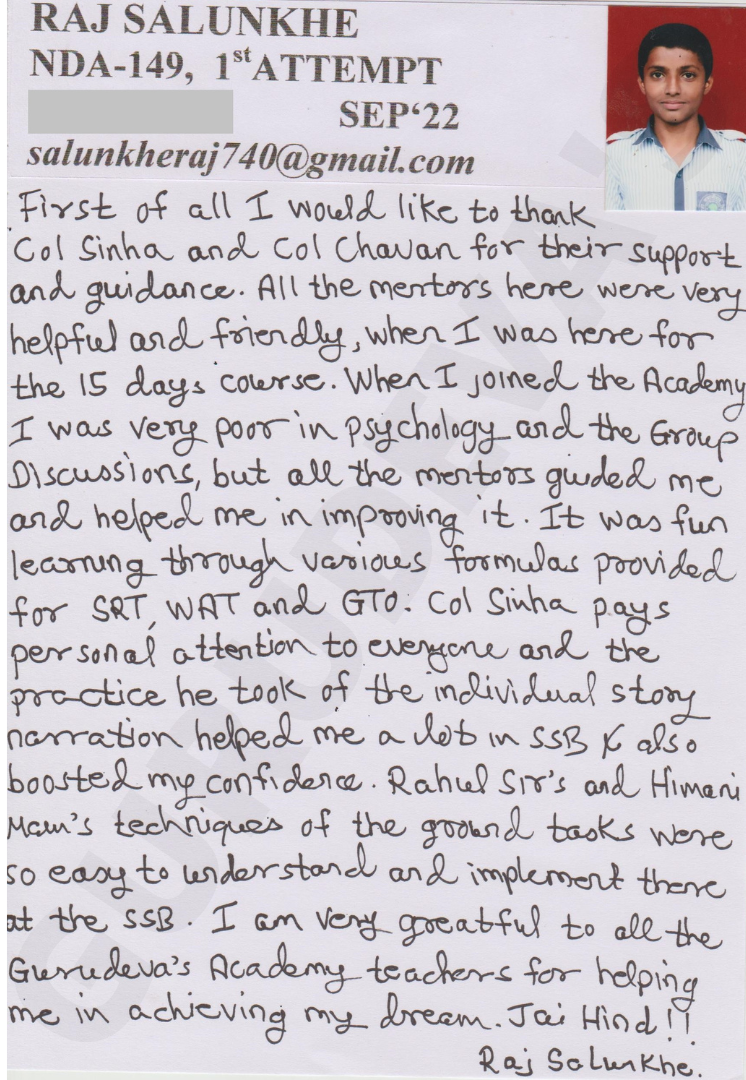 RAJ SALUNKHE
NDA-149, 1st ATTEMPT
SEP‘22
salunkheraj740@gmail.com
First of all I would like to thank
Col Sinha and Col Chavan for their support
and guidance. All the mentors here were very
helpful and friendly, when I was here for
the 15 days course. When I joined the Academy
I was very poor in psychology and the Group
Discussions, but all the mentors guided me
and helped me in improving it. It was fun
learning through various formulas provided
for SRT, WAT and GTO. Col Sinha pays
personal attention to everyone and the
practice he took of the individual story
narration helped me a lot in SSB & also
boosted my confidence. Rahul Sir's and Himani
Mam's techniques of the ground tasks were
so easy to understand and implement there
at the SSB. I am very greatful to all the
Gurudeva's Academy teachers for helping
me in achieving my dream. Jai Hind!!
Raj Salunkhe.
GURUDEVA'